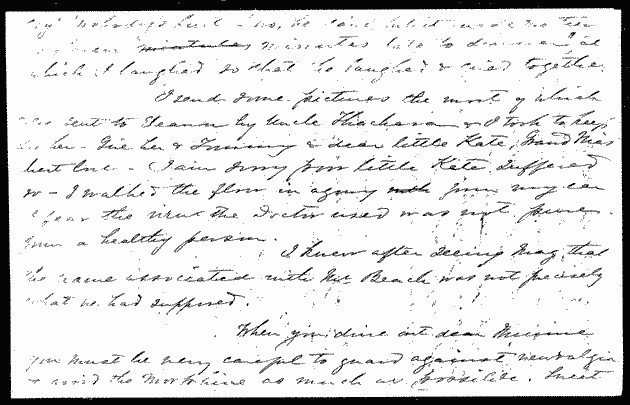 minutes minutes late to dinner", at
which I laughed so that he laughed & cried together
I send some pictures the most of which
were sent to Eleanor by Uncle Thackara & I took to keep
for her - Give her & Tommy & dear little Kate, Grand Mas
best love. - I am sorry poor little Kate suffered
so - I walked the floor in agony with from my ear
I fear the virus the Doctor used was not pure
from a healthy person.
I knew after seeing Mag, that
the name associated with Mr Beach was not precisely
what we had supposed.
When you dine out dear Minnie
you must be very careful to guard against neuralgia
& avoid the Morphine as much as possible. Sweet